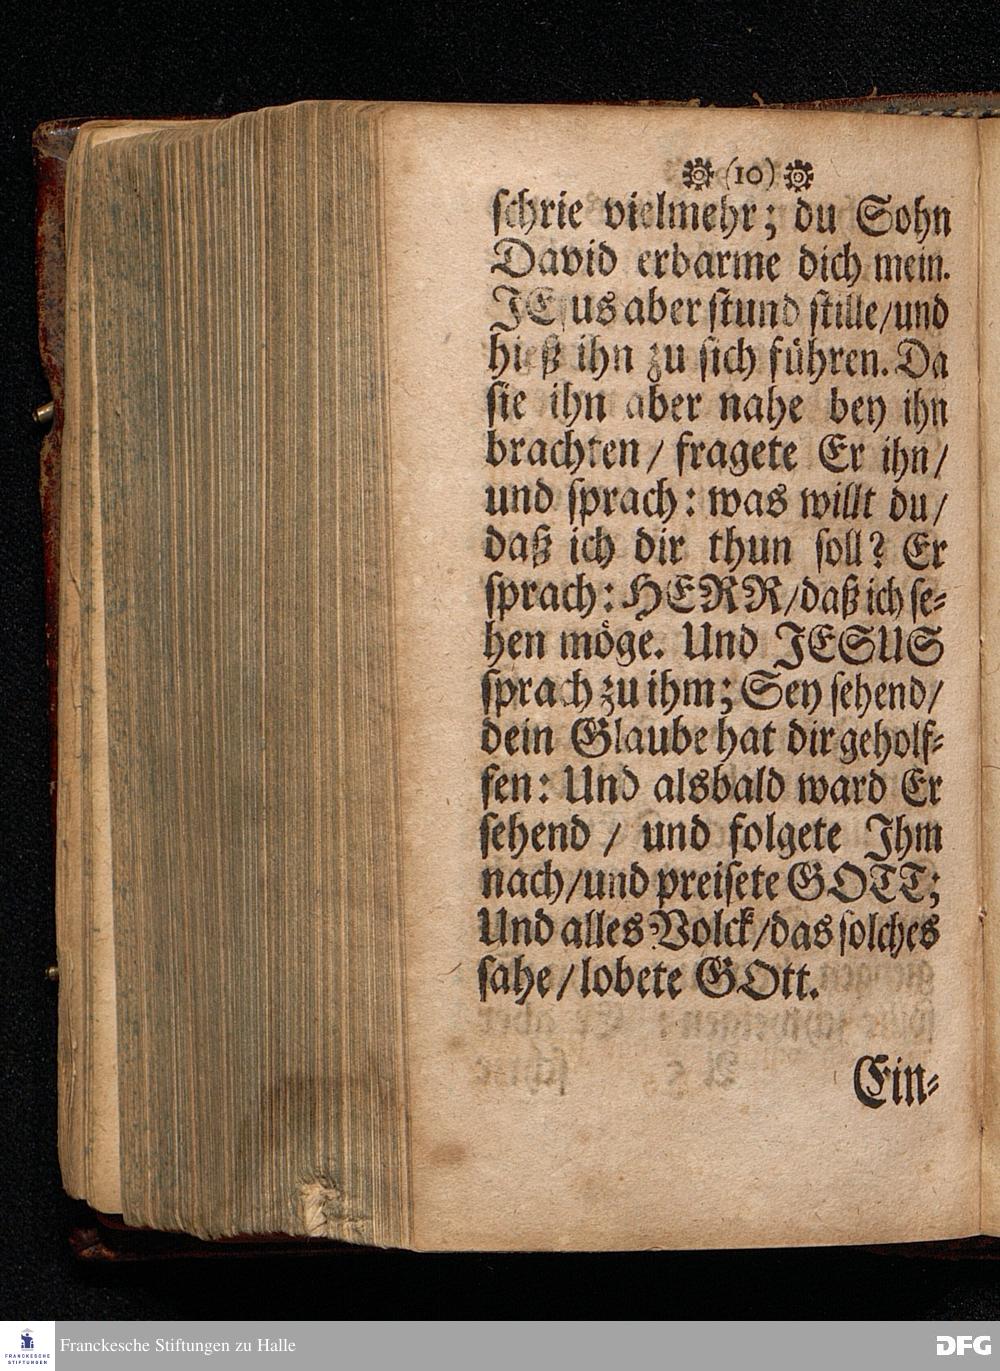 (10)
ſchrie vielmehr; du Sohn
David erbarme dich mein.
JEſus aber ſtund ſtille/und
hieß ihn zu ſich führen. Da
ſie ihn aber nahe bey ihn
brachten/ fragete Er ihn/
und ſprach: was willt du/
daß ich dir thun ſoll? Er
ſprach: HERR/daß ich ſe-
hen möge. Und JESUS
ſprach zu ihm; Sey ſehend/
dein Glaube hat dir geholf-
fen: Und alsbald ward Er
ſehend / und folgete Ihm
nach/und preiſete GOTT;
Und alles Volck/das ſolches
ſahe/lobete GOtt.
Ein-
FRANCKESCHE STIFTUNGEN
Franckesche Stiftungen zu Halle
DFG